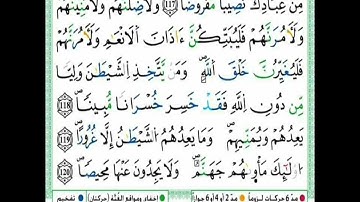 مِنْ عِبَادِكَ نَصِيبًا مَّفْرُوضًا ١١٨ وَلَأُضِلَّنَّهُمْ وَلَأُمَنِّيَنَّهُمْ
وَلَأٓمُرَنَّهُمْ فَلَيُبَتِّكُنَّ ءَاذَانَ ٱلْأَنْعَٰمِ وَلَأٓمُرَنَّهُمْ
فَلَيُغَيِّرُنَّ خَلْقَ ٱللَّهِ ۚ وَمَن يَتَّخِذِ ٱلشَّيْطَٰنَ وَلِيًّا
مِّن دُونِ ٱللَّهِ فَقَدْ خَسِرَ خُسْرَانًا مُّبِينًا ١١٨
يَعِدُهُمْ وَيُمَنِّيهِمْ ۖ وَمَا يَعِدُهُمُ ٱلشَّيْطَٰنُ إِلَّا غُرُورًا ١١٩
أُو۟لَٰٓئِكَ مَأْوَىٰهُمْ جَهَنَّمُ وَلَا يَجِدُونَ عَنْهَا مَحِيصًا ١٢٠
مدّ 6 حركات لزوماً مدّ 2 أو 4 أو 6 جوازاً إخفاء، ومواقع الغُنَّة (حركتان) تفخيم